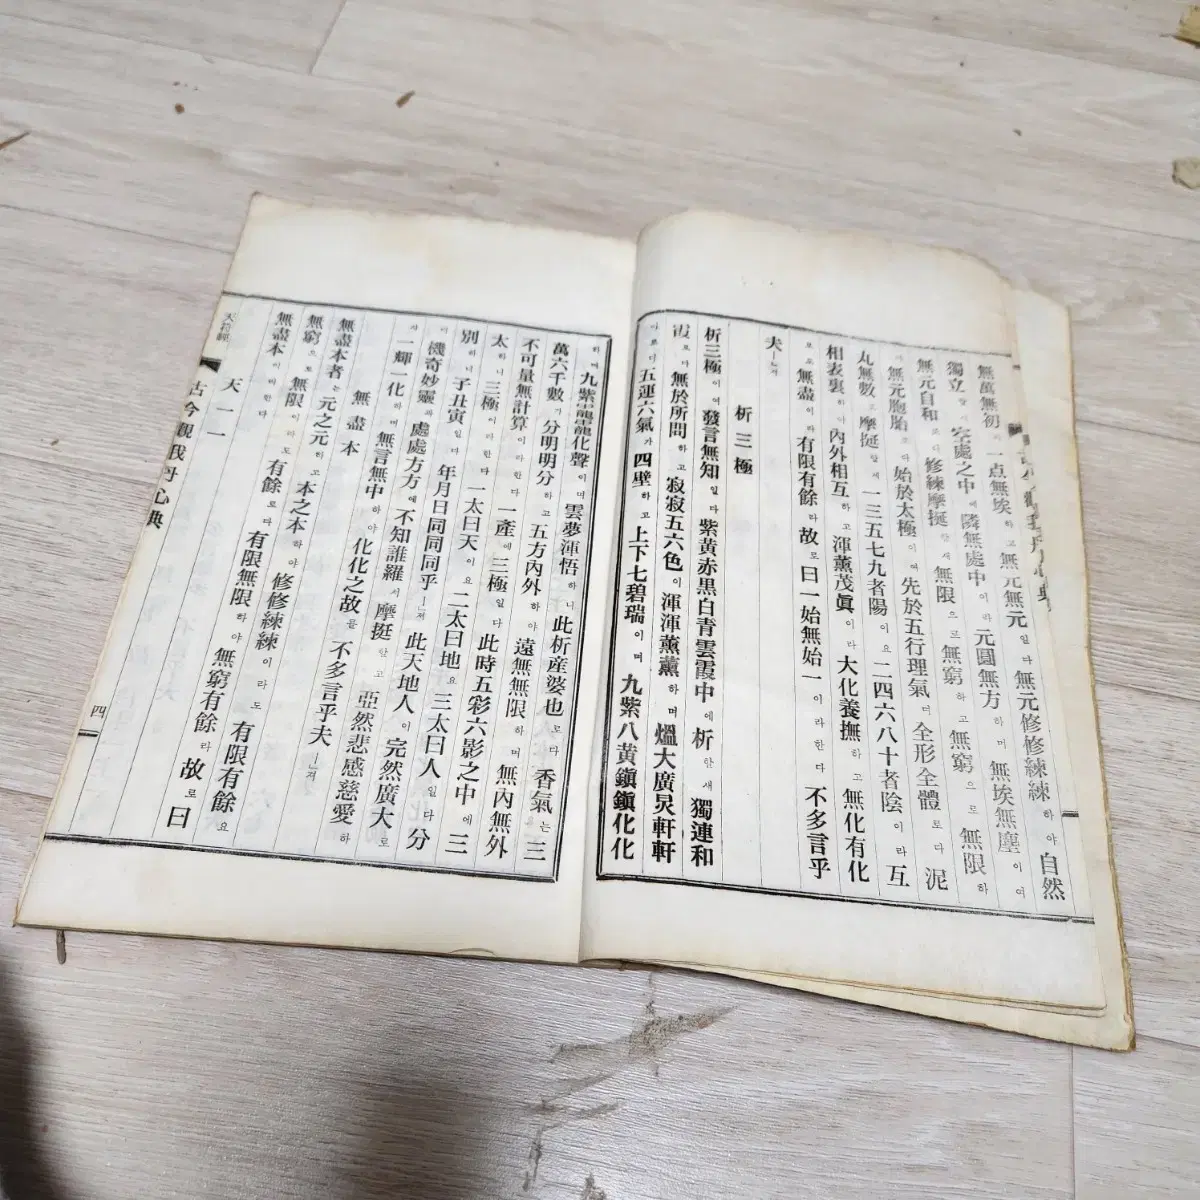 無萬無初 一点無埃하고 無元無元일다 無元修修練練하야 自然
獨立 空處之中에 隣無處中이라 元圓無方하며 無埃無塵이여
無元自和 修練摩挺할새 無限으로 無窮하고 無窮으로 無限하
無元胞胎로 始於太極이여 先於五行理氣더 全形全體로다 泥
丸無數로 摩挺할새 一三五七九者陽이요 二四六八十者陰이라 互
相表裏하야 內外相互하고 渾薰茂眞이라 大化養撫하고 無化有化
로 無盡이라 有限有餘라 故로 曰一始無始一이라한다 不多言乎
夫ㅣㄴ저
析三極
析三極이여 發言無知일다 紫黃赤黑白靑雲霞中에 析할새 獨連和
霞로다 無於所問하고 寂寂五六色이 渾渾薰薰하며 熅大廣炅軒軒
五運六氣가 四壁하고 上下七碧瑞이며 九紫八黃鎭鎭化化
하며 九紫靈靈化聲이며 雲夢渾悟하니 此析產婆也로다 香氣는 三
萬六千數가 分明明分하고 五方內外하야 遠無無限하며 無內無外
不可量無計算이라한다 一產에 三極일다 此時五彩六影之中에 三
太하니 三極이라한다 一太曰天이요 二太曰地요 三太曰人일다 分
別하니 子丑寅일다 年月日同同乎ㅣㄴ저 此天地人이 完然廣大로
機奇妙靈과 處處方方에 不知誰羅서 摩挺할고 亞然悲感慈愛하
一輝一化하며 無言無中하야 化化之故를 不多言乎夫ㅣㄴ저
無盡本
無盡本者는 元之元하고 本之本하야 修修練練이라도 有限有餘요
無窮으로 無限이라도 有餘로다 有限無限하야 無窮有餘라 故로 曰
無盡本이라한다
天一一
天符經
古今觀我丹心典
四